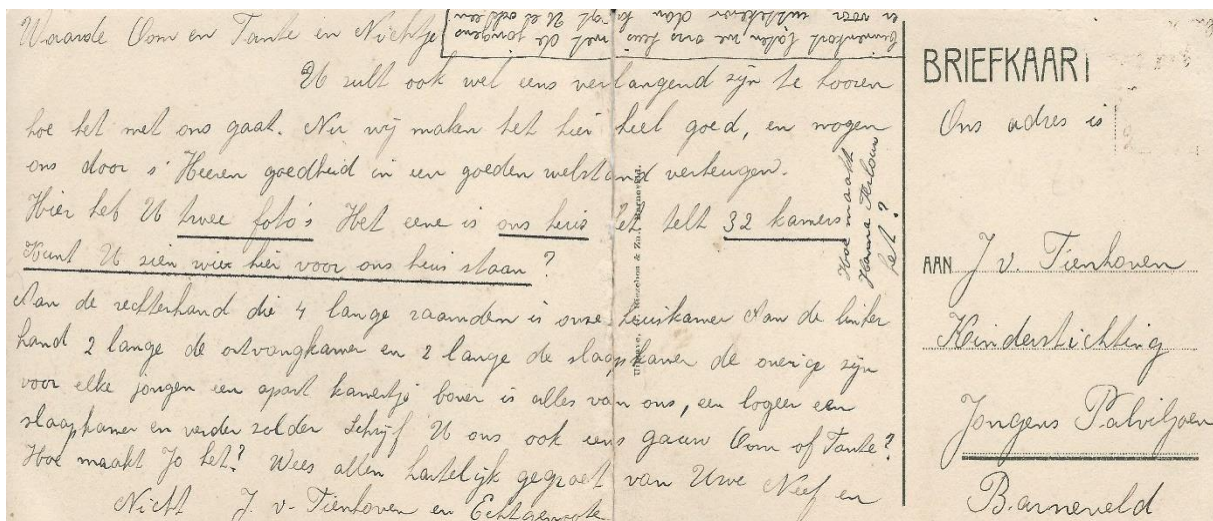 Waarde Oom en Tante en Nichtje
U zult ook wel eens verlangend zijn te hooren
hoe het met ons gaat. Nu wij maken het hier heel goed, en mogen
ons door s' Heeren goedheid in een goeden welstand verheugen.
Hier heb U twee foto's Het eene is ons huis het telt 32 kamers
Kunt U zien wie hier voor ons huis staan?
Aan de rechterhand die 4 lange raamden is onze huiskamer Aan de linker
hand 2 lange de ontvangkamer en 2 lange de slaapkamer de overige zijn
voor elke jongen een apart kamertje boven is alles van ons, een logeer een
slaapkamer en verder zolder Schrijf U ons ook eens gauw Oom of Tante?
Hoe maakt Jo het? Wees allen hartelijk gegroet van Uwe Neef en
Nicht J. v. Tienhoven en Echtgenoote
binnenkort laten we ons huis met de jongens
er voor
Hoe maakt
Hanna
het?
BRIEFKAART
Ons adres is
AAN J v. Tienhoven
Kinderstichting
Jongens Palviljoen
Barneveld